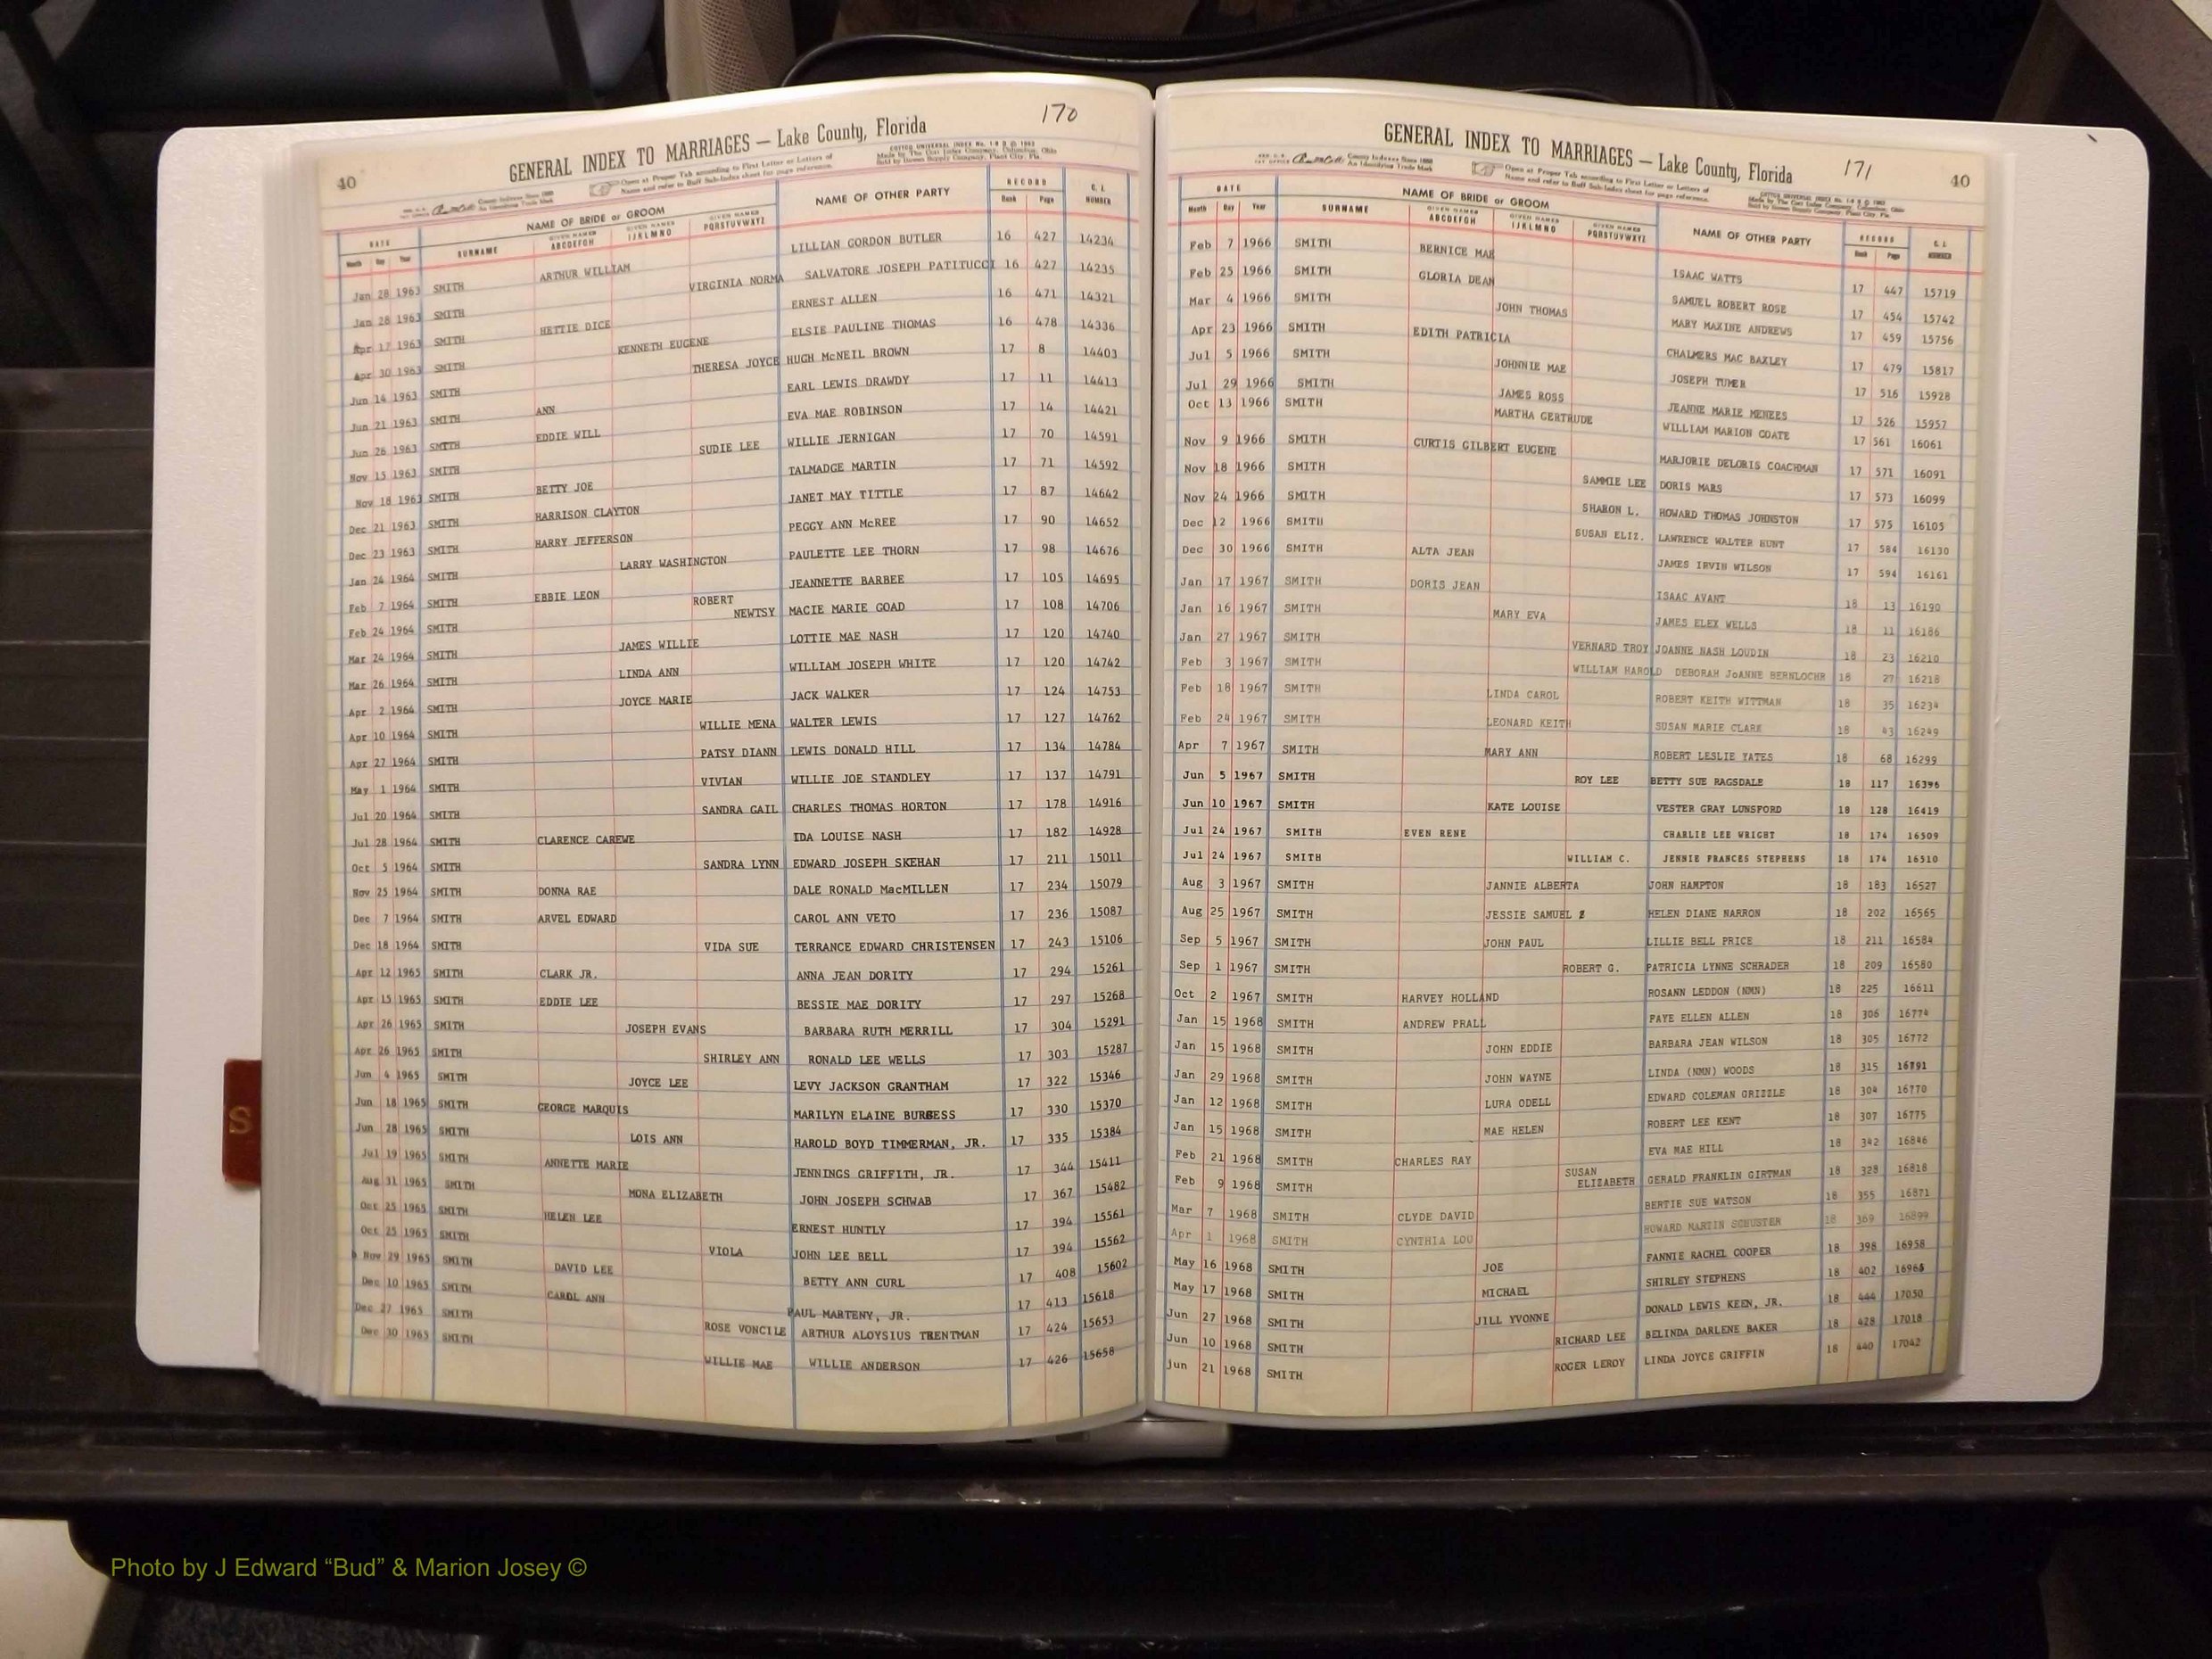 170
40
GENERAL INDEX TO MARRIAGES — Lake County, Florida
County Indexes Since 1888
An Identifying Trade Mark
Open at Proper Tab according to First Letter or Letters of
Name and refer to Buff Sub-Index sheet for page reference.
Made by The Cott Index Company, Columbus, Ohio
DATE NAME OF BRIDE or GROOM NAME OF OTHER PARTY RECORD C. I. NUMBER
Month Day Year SURNAME GIVEN NAMES ABCDEFGH GIVEN NAMES IJKLMNO GIVEN NAMES PQRSTUVWXYZ Book Page
Jan 28 1963 SMITH ARTHUR WILLIAM LILLIAN GORDON BUTLER 16 427 14234
Jan 28 1963 SMITH VIRGINIA NORMA SALVATORE JOSEPH PATITUCCI 16 427 14235
Apr 17 1963 SMITH HETTIE DICE ERNEST ALLEN 16 471 14321
Apr 30 1963 SMITH KENNETH EUGENE ELSIE PAULINE THOMAS 16 478 14336
Jun 14 1963 SMITH THERESA JOYCE HUGH McNEIL BROWN 17 8 14403
Jun 21 1963 SMITH ANN EARL LEWIS DRAWDY 17 11 14413
Jun 26 1963 SMITH EDDIE WILL EVA MAE ROBINSON 17 14 14421
Nov 15 1963 SMITH SUDIE LEE WILLIE JERNIGAN 17 70 14591
Nov 18 1963 SMITH BETTY JOE TALMADGE MARTIN 17 71 14592
Dec 21 1963 SMITH HARRISON CLAYTON JANET MAY TITTLE 17 87 14642
Dec 23 1963 SMITH HARRY JEFFERSON PEGGY ANN McREE 17 90 14652
Jan 24 1964 SMITH LARRY WASHINGTON PAULETTE LEE THORN 17 98 14676
Feb 7 1964 SMITH EBBIE LEON JEANNETTE BARBEE 17 105 14695
Feb 24 1964 SMITH ROBERT NEWTSY MACIE MARIE GOAD 17 108 14706
Mar 24 1964 SMITH JAMES WILLIE LOTTIE MAE NASH 17 120 14740
Mar 26 1964 SMITH LINDA ANN WILLIAM JOSEPH WHITE 17 120 14742
Apr 2 1964 SMITH JOYCE MARIE JACK WALKER 17 124 14753
Apr 10 1964 SMITH WILLIE MENA WALTER LEWIS 17 127 14762
Apr 27 1964 SMITH PATSY DIANN LEWIS DONALD HILL 17 134 14784
May 1 1964 SMITH VIVIAN WILLIE JOE STANDLEY 17 137 14791
Jul 20 1964 SMITH SANDRA GAIL CHARLES THOMAS HORTON 17 178 14916
Jul 28 1964 SMITH CLARENCE CAREWE IDA LOUISE NASH 17 182 14928
Oct 5 1964 SMITH SANDRA LYNN EDWARD JOSEPH SKEHAN 17 211 15011
Nov 25 1964 SMITH DONNA RAE DALE RONALD MacMILLEN 17 234 15079
Dec 7 1964 SMITH ARVEL EDWARD CAROL ANN VETO 17 236 15087
Dec 18 1964 SMITH VIDA SUE TERRANCE EDWARD CHRISTENSEN 17 243 15106
Apr 12 1965 SMITH CLARK JR. ANNA JEAN DORITY 17 294 15261
Apr 15 1965 SMITH EDDIE LEE BESSIE MAE DORITY 17 297 15268
Apr 26 1965 SMITH JOSEPH EVANS BARBARA RUTH MERRILL 17 304 15291
Apr 26 1965 SMITH SHIRLEY ANN RONALD LEE WELLS 17 303 15287
Jun 4 1965 SMITH JOYCE LEE LEVY JACKSON GRANTHAM 17 322 15346
Jun 18 1965 SMITH GEORGE MARQUIS MARILYN ELAINE BURGESS 17 330 15370
Jun 28 1965 SMITH LOIS ANN HAROLD BOYD TIMMERMAN, JR. 17 335 15384
Jul 19 1965 SMITH ANNETTE MARIE JENNINGS GRIFFITH, JR. 17 344 15411
Aug 31 1965 SMITH MONA ELIZABETH JOHN JOSEPH SCHWAB 17 367 15482
Oct 25 1965 SMITH HELEN LEE ERNEST HUNTLY 17 394 15561
Oct 25 1965 SMITH VIOLA JOHN LEE BELL 17 394 15562
Nov 29 1965 SMITH DAVID LEE BETTY ANN CURL 17 408 15602
Dec 10 1965 SMITH CAROL ANN PAUL MARTENY, JR. 17 413 15618
Dec 27 1965 SMITH ROSE VONCILE ARTHUR ALOYSIUS TRENTMAN 17 424 15653
Dec 30 1965 SMITH WILLIE MAE WILLIE ANDERSON 17 426 15658
S
171
40
GENERAL INDEX TO MARRIAGES — Lake County, Florida
County Indexes Since 1888
An Identifying Trade Mark
Open at Proper Tab according to First Letter or Letters of
Name and refer to Buff Sub-Index sheet for page reference.
DATE NAME OF BRIDE or GROOM NAME OF OTHER PARTY RECORD C. I. NUMBER
Month Day Year SURNAME GIVEN NAMES ABCDEFGH GIVEN NAMES IJKLMNO GIVEN NAMES PQRSTUVWXYZ Book Page
Feb 7 1966 SMITH BERNICE MAE ISAAC WATTS 17 447 15719
Feb 25 1966 SMITH GLORIA DEAN SAMUEL ROBERT ROSE 17 454 15742
Mar 4 1966 SMITH JOHN THOMAS MARY MAXINE ANDREWS 17 459 15756
Apr 23 1966 SMITH EDITH PATRICIA CHALMERS MAC BAXLEY 17 479 15817
Jul 5 1966 SMITH JOHNNIE MAE JOSEPH TUMER 17 516 15928
Jul 29 1966 SMITH JAMES ROSS JEANNE MARIE MENEES 17 526 15957
Oct 13 1966 SMITH MARTHA GERTRUDE WILLIAM MARION COATE 17 561 16061
Nov 9 1966 SMITH CURTIS GILBERT EUGENE MARJORIE DELORIS COACHMAN 17 571 16091
Nov 18 1966 SMITH SAMMIE LEE DORIS MARS 17 573 16099
Nov 24 1966 SMITH SHARON L. HOWARD THOMAS JOHNSTON 17 575 16105
Dec 12 1966 SMITH SUSAN ELIZ. LAWRENCE WALTER HUNT 17 584 16130
Dec 30 1966 SMITH ALTA JEAN JAMES IRVIN WILSON 17 594 16161
Jan 17 1967 SMITH DORIS JEAN ISAAC AVANT 18 13 16190
Jan 16 1967 SMITH MARY EVA JAMES ELEX WELLS 18 11 16186
Jan 27 1967 SMITH VERNARD TROY JOANNE NASH LOUDIN 18 23 16210
Feb 3 1967 SMITH WILLIAM HAROLD DEBORAH JoANNE BERNLOCHR 18 27 16218
Feb 18 1967 SMITH LINDA CAROL ROBERT KEITH WITTMAN 18 35 16234
Feb 24 1967 SMITH LEONARD KEITH SUSAN MARIE CLARK 18 43 16249
Apr 7 1967 SMITH MARY ANN ROBERT LESLIE YATES 18 68 16299
Jun 5 1967 SMITH ROY LEE BETTY SUE RAGSDALE 18 117 16396
Jun 10 1967 SMITH KATE LOUISE VESTER GRAY LUNSFORD 18 128 16419
Jul 24 1967 SMITH EVEN RENE CHARLIE LEE WRIGHT 18 174 16509
Jul 24 1967 SMITH WILLIAM C. JENNIE FRANCES STEPHENS 18 174 16510
Aug 3 1967 SMITH JANNIE ALBERTA JOHN HAMPTON 18 183 16527
Aug 25 1967 SMITH JESSIE SAMUEL HELEN DIANE NARRON 18 202 16565
Sep 5 1967 SMITH JOHN PAUL LILLIE BELL PRICE 18 211 16584
Sep 1 1967 SMITH ROBERT G. PATRICIA LYNNE SCHRADER 18 209 16580
Oct 2 1967 SMITH HARVEY HOLLAND ROSANN LEDDON (NMN) 18 225 16611
Jan 15 1968 SMITH ANDREW PRALL FAYE ELLEN ALLEN 18 306 16774
Jan 15 1968 SMITH JOHN EDDIE BARBARA JEAN WILSON 18 305 16772
Jan 29 1968 SMITH JOHN WAYNE LINDA (NMN) WOODS 18 315 16791
Jan 12 1968 SMITH LURA ODELL EDWARD COLEMAN GRIZZLE 18 304 16770
Jan 15 1968 SMITH MAE HELEN ROBERT LEE KENT 18 307 16775
Feb 21 1968 SMITH CHARLES RAY EVA MAE HILL 18 342 16846
Feb 9 1968 SMITH SUSAN ELIZABETH GERALD FRANKLIN GIRTMAN 18 328 16818
Mar 7 1968 SMITH CLYDE DAVID BERTIE SUE WATSON 18 355 16871
Apr 1 1968 SMITH CYNTHIA LOU HOWARD MARTIN SCHUSTER 18 369 16899
May 16 1968 SMITH JOE FANNIE RACHEL COOPER 18 398 16958
May 17 1968 SMITH MICHAEL SHIRLEY STEPHENS 18 402 16965
Jun 27 1968 SMITH JILL YVONNE DONALD LEWIS KEEN, JR. 18 444 17050
Jun 10 1968 SMITH RICHARD LEE BELINDA DARLENE BAKER 18 428 17018
Jun 21 1968 SMITH ROGER LEROY LINDA JOYCE GRIFFIN 18 440 17042
Photo by J Edward “Bud” & Marion Josey ©